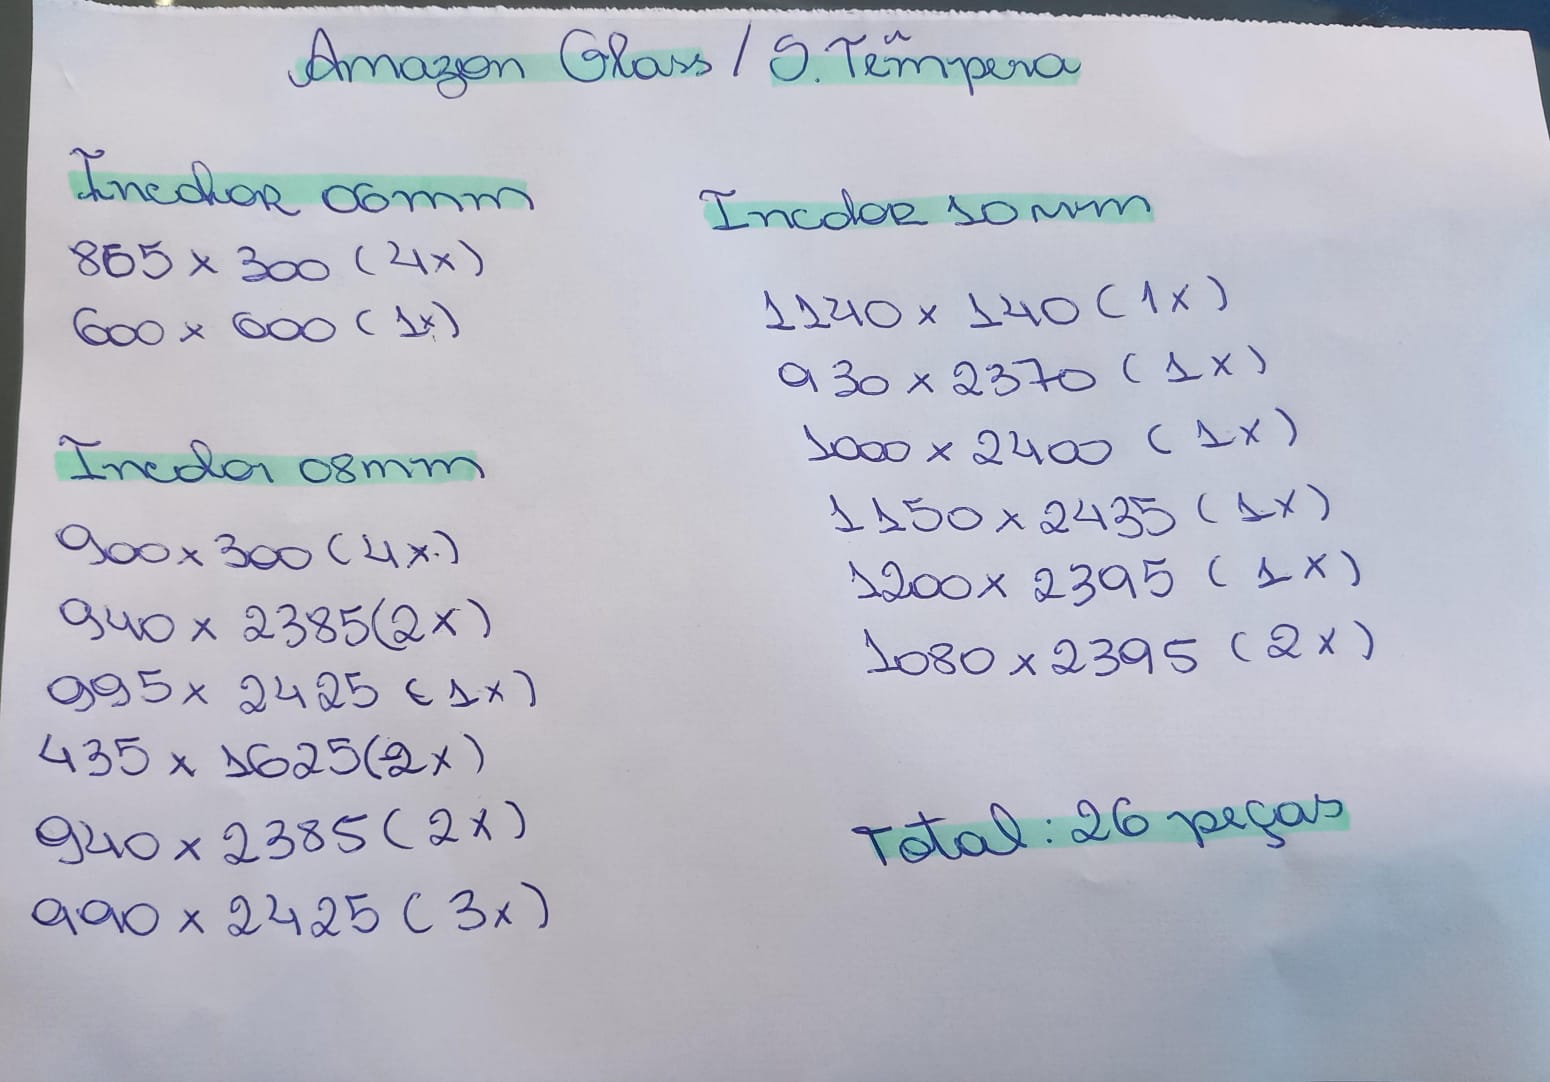 Amazon Glass / S. Têmpera
Incolor 06mm
865 x 300 (4x)
600 x 600 (1x)
Incolor 08mm
900 x 300 (4x)
940 x 2385 (2x)
995 x 2425 (1x)
435 x 1625 (2x)
940 x 2385 (2x)
990 x 2425 (3x)
Incolor 10mm
1140 x 140 (1x)
930 x 2370 (1x)
1000 x 2400 (1x)
1150 x 2435 (1x)
1200 x 2395 (1x)
1080 x 2395 (2x)
Total: 26 peças